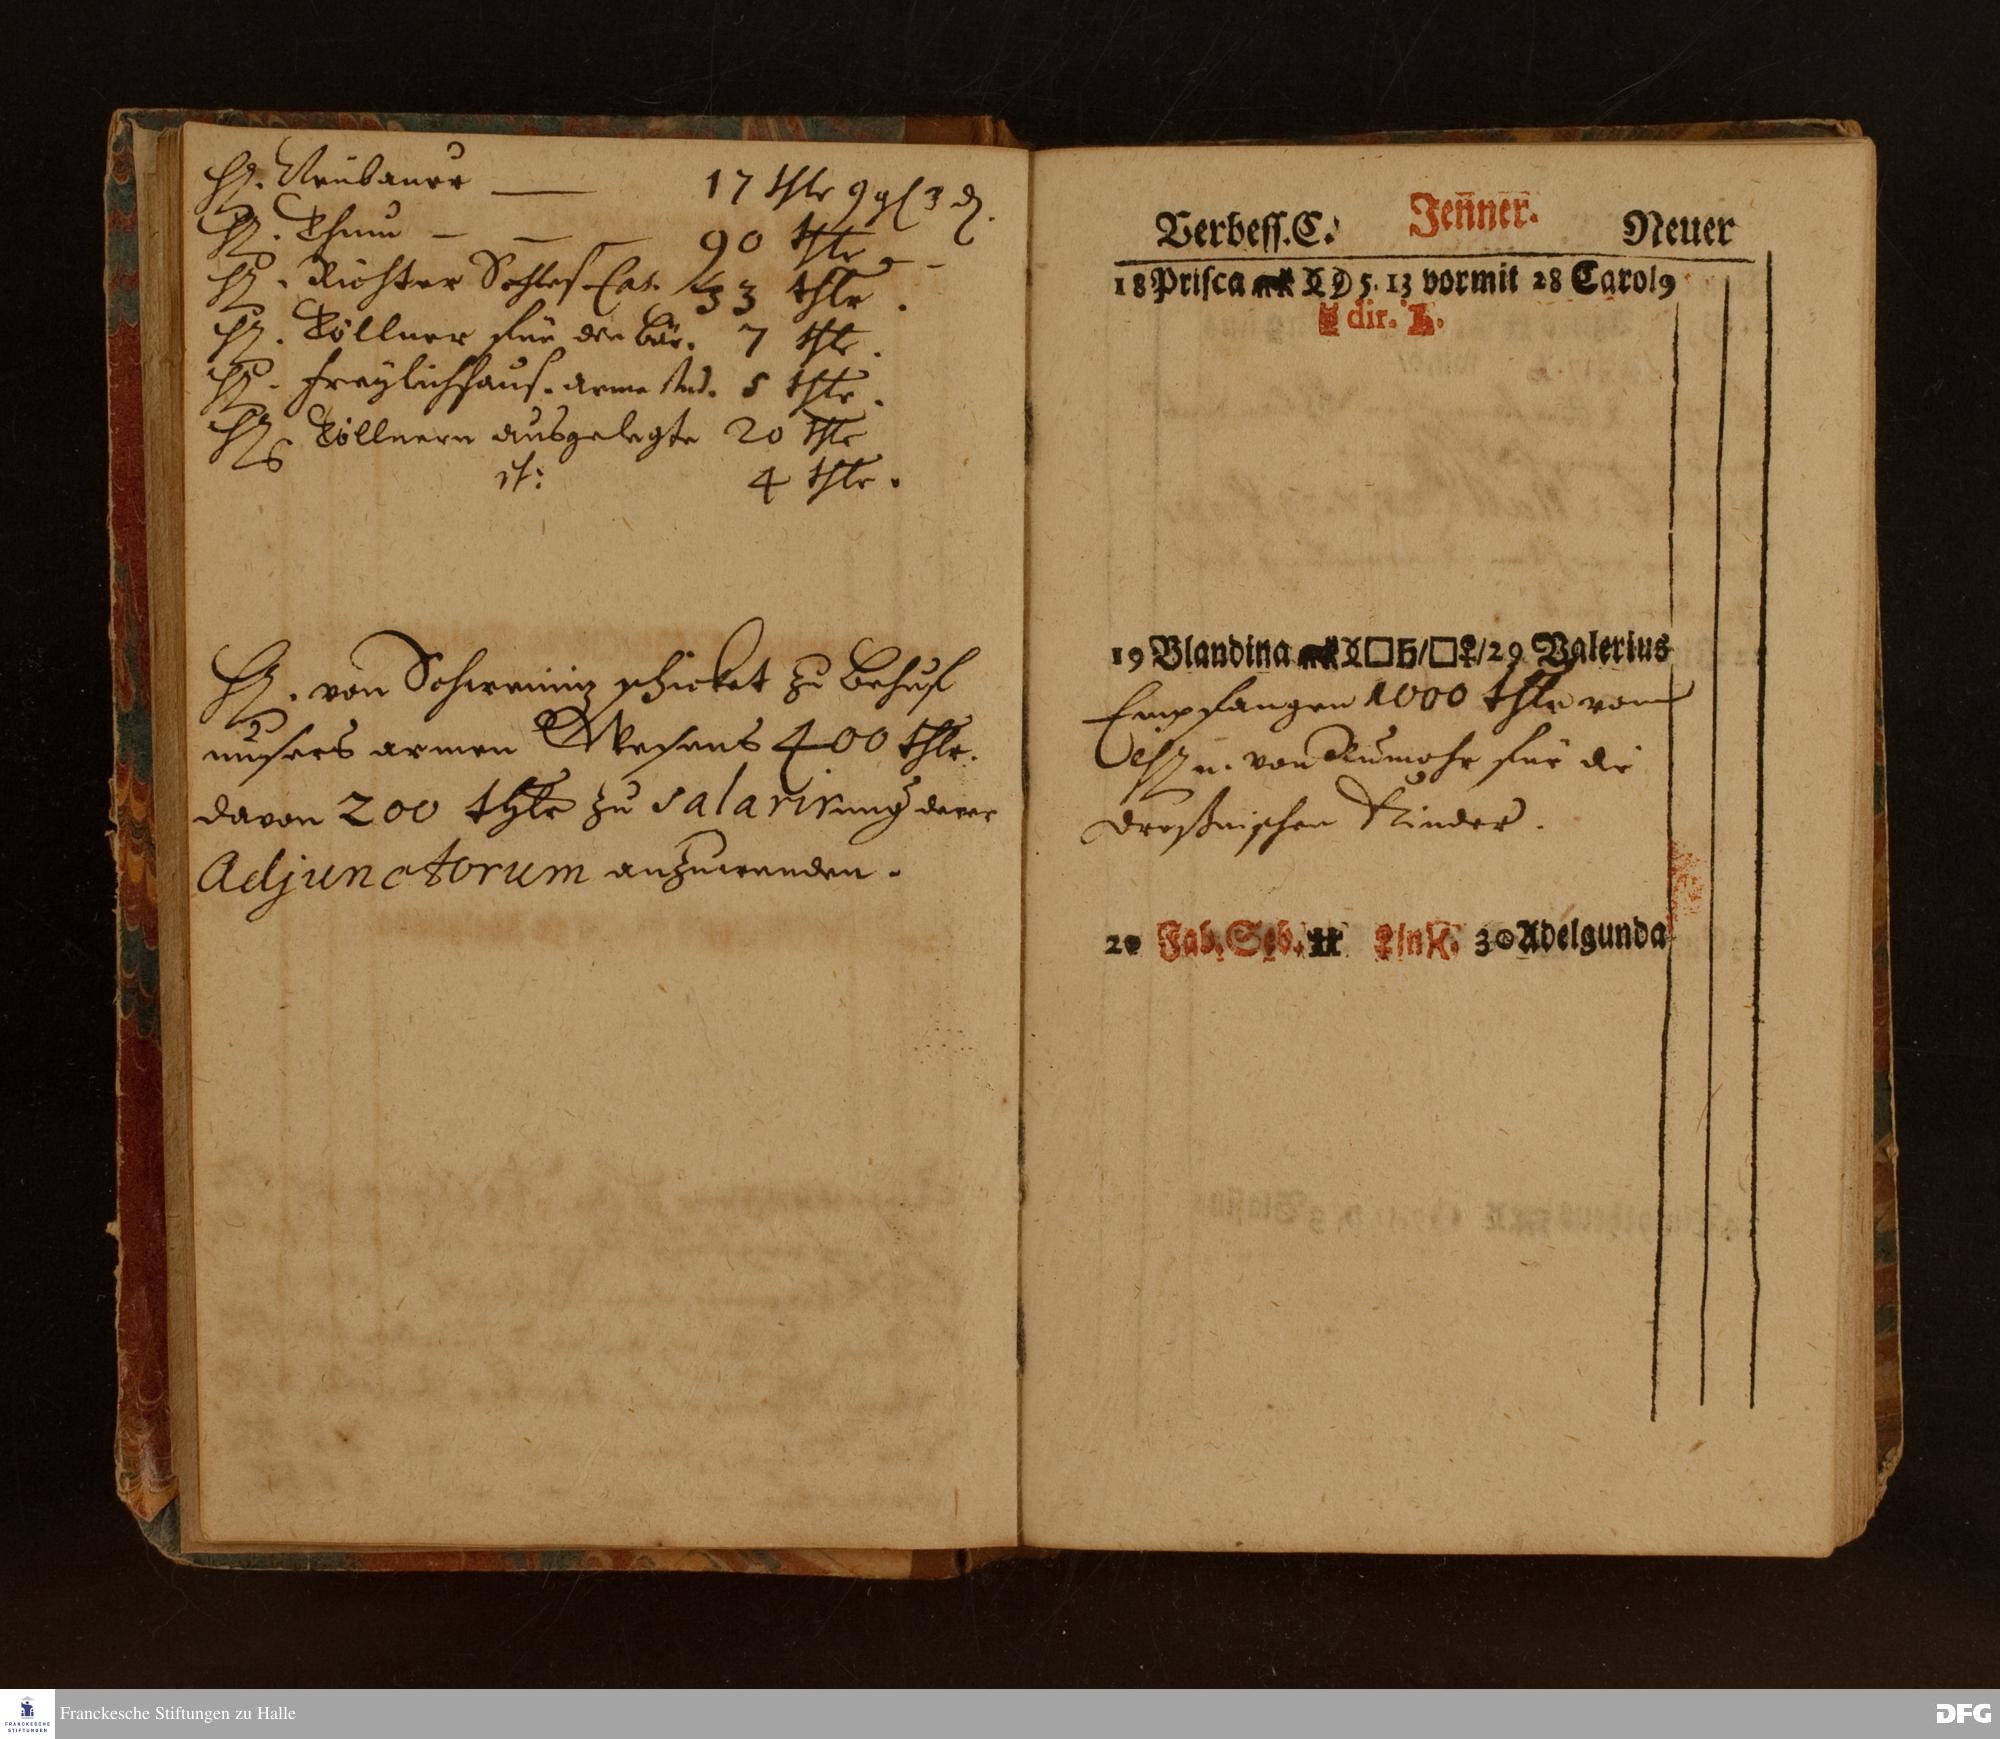 H. Neubauer — 17 thlr 9 gl 3 d.
H. Thum — — 90 thlr — –
H. Richter Schles. Cat. 33 thlr.
H. Töllner für den Bär. 7 thlr.
H. Freylichhaus. arme Stud. 5 thlr.
H. Töllnern ausgelegte 20 thlr
it: 4 thlr.
H. von Schweiniz schicket zu behuf
unsers armen Wesens 400 thlr.
davon 200 thlr zu salarirung derer
Adjunctorum anzuwenden.
Verbess. C. Jeñner. Neuer
18 Prisca ☾ 5. 13 vormit 28 Carol9
dir.
19 Blandina □♄/□♀/29 Valerius
Empfangen 1000 thlr vom
H. von Rumohr für die
Droßnischen Kinder.
20 Fab. Seb. 30 Adelgunda
Franckesche Stiftungen zu Halle
FRANCKESCHE
STIFTUNGEN
DFG